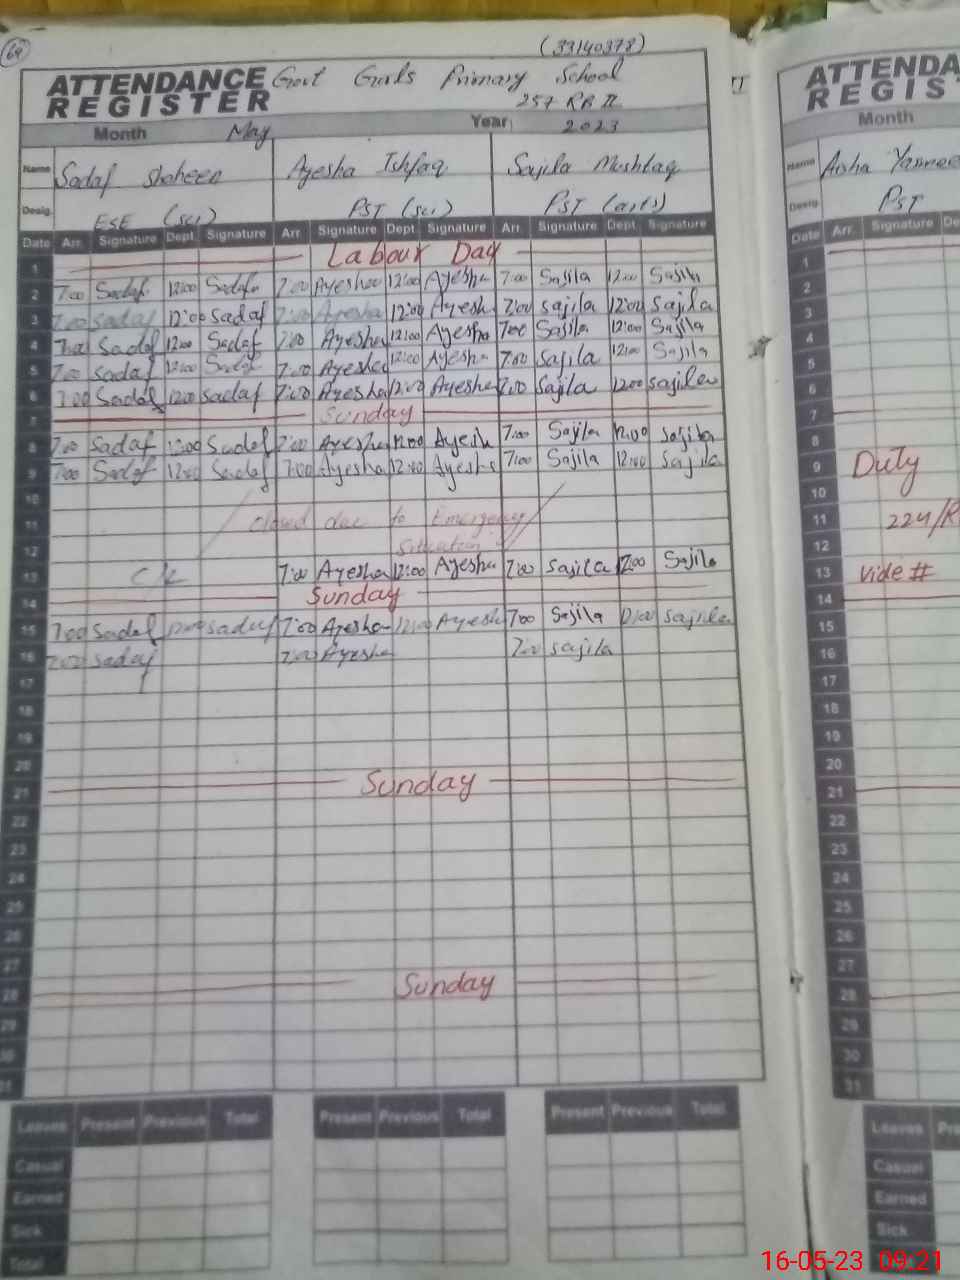 64
(33140378)
ATTENDANCE Govt Girls Primary School
REGISTER 257 RB II
Month May Year 2023
Name Sadaf Shaheen Ayesha Ishfaq Sajila Mushtaq
Desig. ESE (sci) PST (sci) PST (arts)
Date Arr. Signature Dept. Signature Arr. Signature Dept. Signature Arr. Signature Dept. Signature
1 Labour Day
2 7:00 Sadaf 12:00 Sadaf 7:00 Ayesha 12:00 Ayesha 7:00 Sajila 12:00 Sajila
3 7:00 Sadaf 12:00 Sadaf 7:00 Ayesha 12:00 Ayesha 7:00 Sajila 12:00 Sajila
4 7:00 Sadaf 12:00 Sadaf 7:00 Ayesha 12:00 Ayesha 7:00 Sajila 12:00 Sajila
5 7:00 Sadaf 12:00 Sadaf 7:00 Ayesha 12:00 Ayesha 7:00 Sajila 12:00 Sajila
6 7:00 Sadaf 12:00 Sadaf 7:00 Ayesha 12:00 Ayesha 7:00 Sajila 12:00 Sajila
7 Sunday
8 7:00 Sadaf 12:00 Sadaf 7:00 Ayesha 12:00 Ayesha 7:00 Sajila 12:00 Sajila
9 7:00 Sadaf 12:00 Sadaf 7:00 Ayesha 12:00 Ayesha 7:00 Sajila 12:00 Sajila
10
11 Closed due to Emergency
12 Situation
13 C/L 7:00 Ayesha 12:00 Ayesha 7:00 Sajila 12:00 Sajila
14 Sunday
15 7:00 Sadaf 12:00 Sadaf 7:00 Ayesha 12:00 Ayesha 7:00 Sajila 12:00 Sajila
16 7:00 Sadaf 7:00 Ayesha 7:00 Sajila
17
18
19
20
21 Sunday
22
23
24
25
26
27
28 Sunday
29
30
31
Leaves Present Previous Total Present Previous Total Present Previous Total
Casual
Earned
Sick
Total
ATTENDA
REGIST
Month
Name Aisha Yasmee
Desig. PST
Date Arr. Signature De
1
2
3
4
5
6
7
8
9 Duty
10
11 224/R
12
13 Vide #
14
15
16
17
18
19
20
21
22
23
24
25
26
27
28
29
30
31
Leaves Pre
Casual
Earned
Sick
16-05-23 09:21